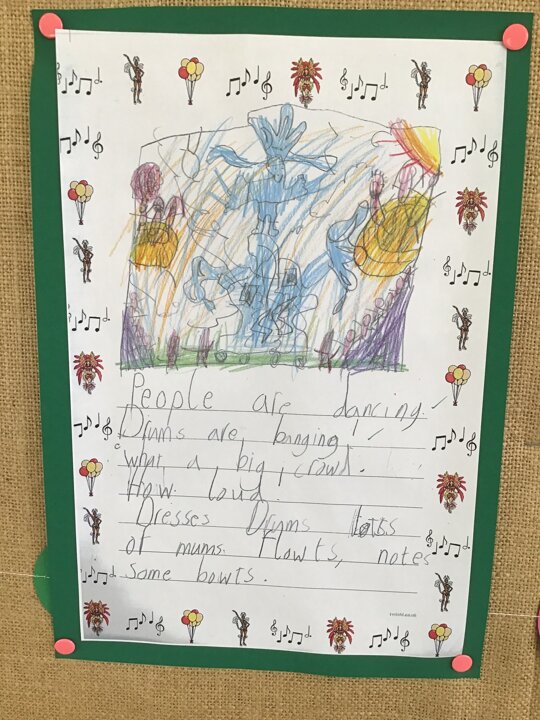 People are dancing.
Drums are, banging!
what, a, big, crowd.
How loud.
Dresses Drums lots
of mums. Flowts, notes
Some bowts.
twinkl.co.uk